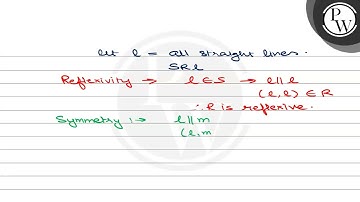 PW
let l = all straight lines.
SRl
Reflexivity → l ∈ S → l || l
(l, l) ∈ R
∴ l is reflexive.
Symmetry :→ l || m
(l, m